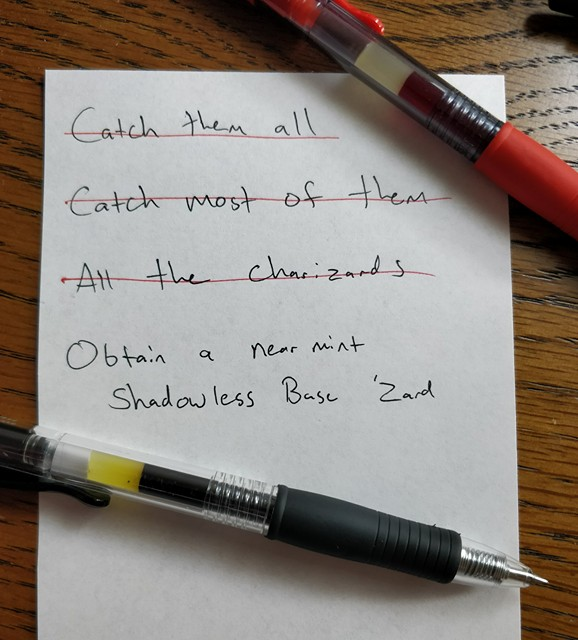 Catch them all
Catch most of them
All the charizards
Obtain a near mint
Shadowless Base 'Zard